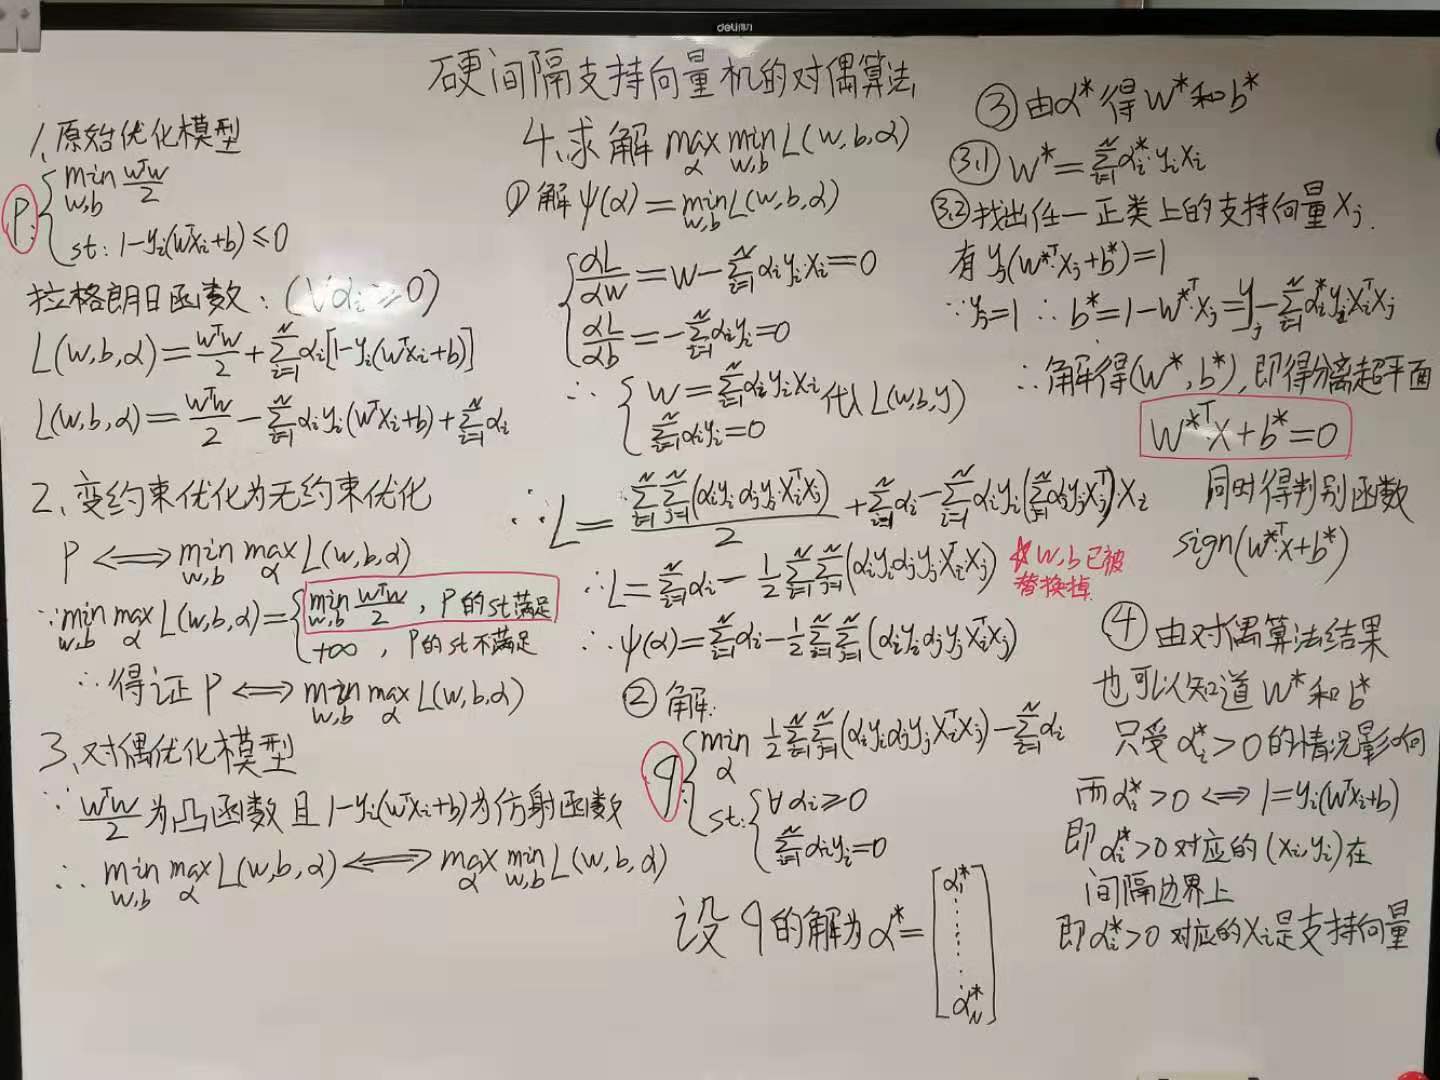 deli得力
硬间隔支持向量机的对偶算法
1、原始优化模型
P: { min_{w,b} wᵀw/2
st: 1-yᵢ(wᵀxᵢ+b)≤0
拉格朗日函数:(∀αᵢ≥0)
L(w,b,α)=wᵀw/2+∑_{i=1}^{N}αᵢ[1-yᵢ(wᵀxᵢ+b)]
L(w,b,α)=wᵀw/2-∑_{i=1}^{N}αᵢyᵢ(wᵀxᵢ+b)+∑_{i=1}^{N}αᵢ
2、变约束优化为无约束优化
P ⟺ min_{w,b} max_{α} L(w,b,α)
∵ min_{w,b} max_{α} L(w,b,α)={ min_{w,b} wᵀw/2,P的st满足
+∞,P的st不满足
∴得证P ⟺ min_{w,b} max_{α} L(w,b,α)
3、对偶优化模型
∵ wᵀw/2为凸函数且1-yᵢ(wᵀxᵢ+b)为仿射函数
∴ min_{w,b} max_{α} L(w,b,α) ⟺ max_{α} min_{w,b} L(w,b,α)
4、求解 max_{α} min_{w,b} L(w,b,α)
①解ψ(α)=min_{w,b} L(w,b,α)
{ αL/αw=w-∑_{i=1}^{N}αᵢyᵢxᵢ=0
αL/αb=-∑_{i=1}^{N}αᵢyᵢ=0
∴ { w=∑_{i=1}^{N}αᵢyᵢxᵢ 代入L(w,b,y)
∑_{i=1}^{N}αᵢyᵢ=0
∵L=∑_{i=1}^{N}∑_{j=1}^{N}(αᵢyᵢαⱼyⱼxᵢᵀxⱼ)/2+∑_{i=1}^{N}αᵢ-∑_{i=1}^{N}αᵢyᵢ(∑_{j=1}^{N}αⱼyⱼxⱼᵀ)·xᵢ
∴L=∑_{i=1}^{N}αᵢ-1/2∑_{i=1}^{N}∑_{j=1}^{N}(αᵢyᵢαⱼyⱼxᵢᵀxⱼ) ☆w,b已被
替换掉
∴ψ(α)=∑_{i=1}^{N}αᵢ-1/2∑_{i=1}^{N}∑_{j=1}^{N}(αᵢyᵢαⱼyⱼxᵢᵀxⱼ)
②解:
q: { min_{α} 1/2∑_{i=1}^{N}∑_{j=1}^{N}(αᵢyᵢαⱼyⱼxᵢᵀxⱼ)-∑_{i=1}^{N}αᵢ
st: { ∀αᵢ≥0
∑_{i=1}^{N}αᵢyᵢ=0
设q的解为α*=[α₁*
⋮
α_N*]
③由α*得w*和b*
(3.1) w*=∑_{i=1}^{N}αᵢ*yᵢxᵢ
(3.2)找出任一正类上的支持向量xⱼ.
有yⱼ(w*ᵀxⱼ+b*)=1
∵yⱼ=1 ∴b*=1-w*ᵀxⱼ=yⱼ-∑_{i=1}^{N}αᵢ*yᵢxᵢᵀxⱼ
∴解得(w*,b*),即得分离超平面
w*ᵀx+b*=0
同时得判别函数
sign(w*ᵀx+b*)
④由对偶算法结果
也可以知道w*和b*
只受αᵢ*>0的情况影响
而αᵢ*>0 ⟺ 1=yᵢ(wᵀxᵢ+b)
即αᵢ*>0对应的(xᵢ,yᵢ)在
间隔边界上
即αᵢ*>0对应的xᵢ是支持向量